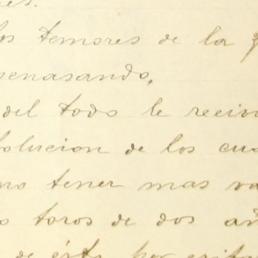 os temores de la
penasando,
del todo le reciv
olucion de los cua
no tener mas va
s toros de dos añ
de ésta por evita